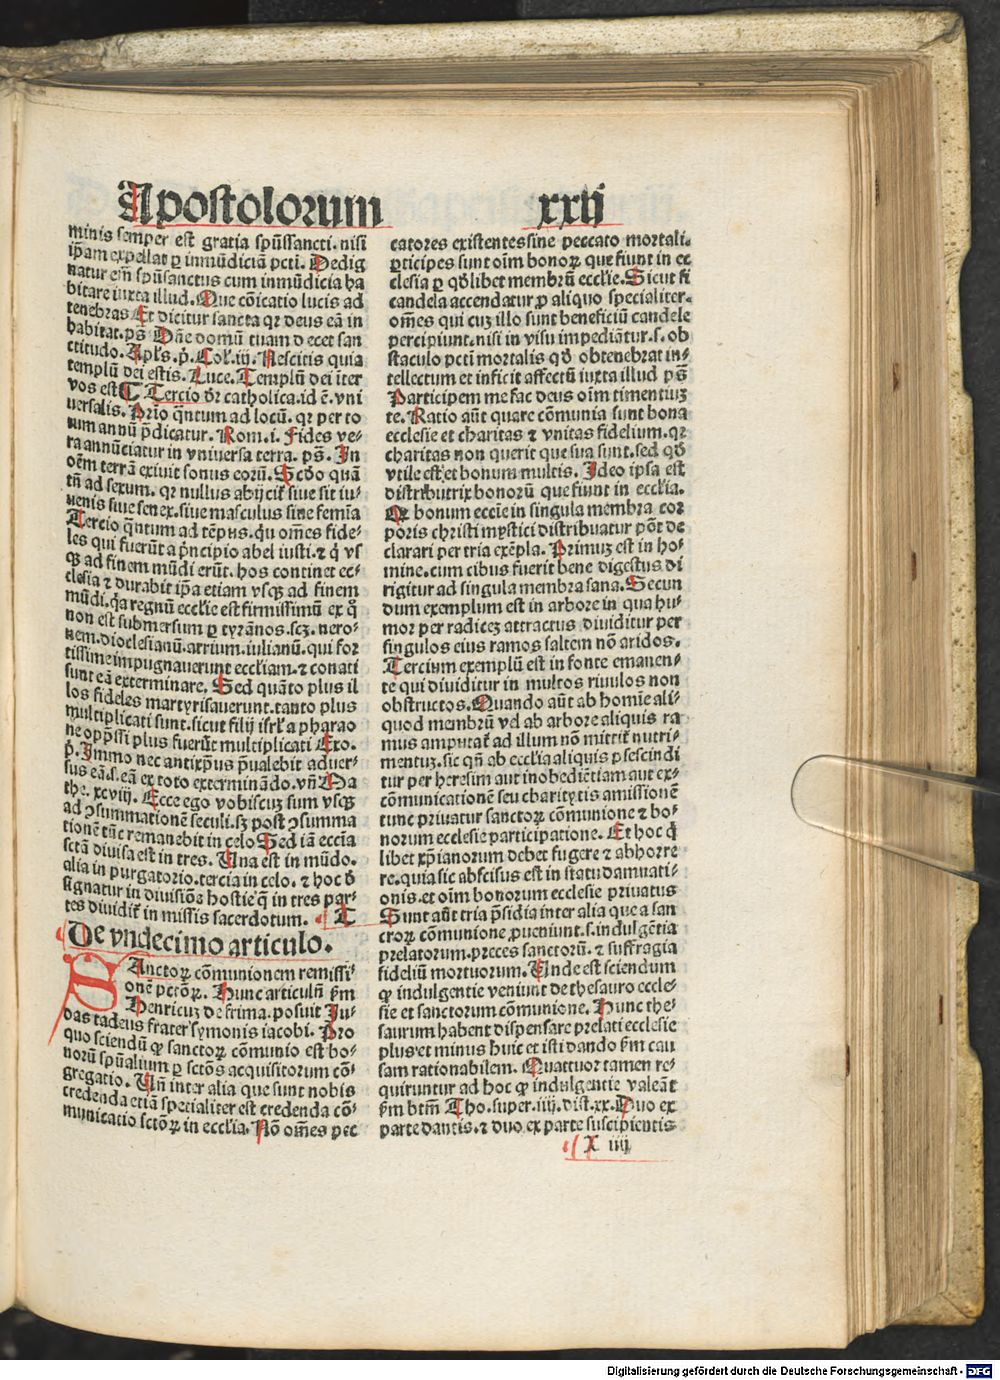 Apostolorum xxij
minis semper est gratia spūssancti. nisi
ip̄am expellat ꝑ inmūdiciā pcti. Dedig
natur em̄ spūsanctus cum inmūdicia ha
bitare iuxta illud. Que cōicatio lucis ad
tenebras Et dicitur sancta qꝛ deus eā in
habitat. pꝰ Dn̄e domū tuam decet san
ctitudo. Apls. p̄. Coꝛ. iij. Nescitis quia
templū dei estis. Luce. Templū dei iter
vos est ¶ Tercio dr̄ catholica. id ē. vni
uersalis. Prio q̄ntum ad locū. qꝛ per to
tum annū p̄dicatur. Rom. i. Fides ve⸗
ra annūciatur in vniuersa terra. ps̄. In
oēm terrā exiuit sonus eorū. Scdo quā
tū ad sexum. qꝛ nullus abijcit̄ siue sit iu⸗
uenis siue senex. siue masculus siue femīa
Tercio q̄ntum ad tēpus. qu omēs fide⸗
les qui fuerūt a p̄ncipio abel iusti. ⁊ q̄ vs
qꝫ ad finem mūdi erūt. hos continet ec⸗
clesia ⁊ durabit ip̄a etiam vsqꝫ ad finem
mūdi. q̄a regnū eccl̄ie est firmissimū ex q̊
non est submersum ꝑ tyrānos. scꝫ. nero⸗
nem. dioclesianū. arrium. iulianū. qui for
tissime impugnauerunt eccl̄iam. ⁊ conati
sunt eā exterminare. Sed quāto plus il
los fideles martyrisauerunt. tanto plus
multiplicati sunt. sicut filij isrl̄ a pharao
ne opp̄ssi plus fuerūt multiplicati Exo.
p̄. Immo nec antixp̄us p̄ualebit aduer⸗
sus eā. s. eā ex toto exterminādo. vn̄ Ma
the. xcviij. Ecce ego vobiscuꝫ sum vsqꝫ
ad ꝯsummationē seculi. sꝫ post ꝯsumma
tionē tūc remanebit in celo Sed iā eccīa
sctā diuisa est in tres. Una est in mūdo.
alia in purgatorio. tercia in celo. ⁊ hoc
signatur in diuisiōe hostie q̄ in tres par⸗
tes diuidit̄ in missis sacerdotum.
De vndecimo articulo.
SAnctoꝝ cōmunionem remissi⸗
onē pctōꝝ. Hunc articulū s̄m
Henricuꝫ de frima. posuit Iu⸗
das tadeus frater symonis iacobi. Pro
quo sciendū ꝙ sanctoꝝ cōmunio est bo⸗
norū spūalium ꝑ sctōs acquisitorum cō⸗
gregatio. Un̄ inter alia que sunt nobis
credenda etiā specialiter est credenda cō⸗
municatio sctōꝝ in eccl̄ia. Nō omēs pec
catores existentes sine peccato mortali.
ꝑticipes sunt oīm bonoꝝ que fiunt in ec
clesia ꝑ qd̄libet membrū eccl̄ie. Sicut si
candela accendatur ꝓ aliquo specialiter.
omēs qui cuꝫ illo sunt beneficiū candele
percipiunt. nisi in visu impediātur. s. ob
staculo pcti mortalis qd̄ obtenebrat in⸗
tellectum et inficit affectū iuxta illud ps̄
Participem me fac deus oīm timentiuꝫ
te. Ratio aūt quare cōmunia sunt bona
ecclesie et charitas ⁊ vnitas fidelium. qꝛ
charitas non querit que sua sunt. sed qd̄
vtile est. et bonum multis. Ideo ipsa est
distributrix bonorū que fiunt in eccl̄ia.
Et bonum eccīe in singula membra cor
poris christi mystici distribuatur pōt de
clarari per tria exēpla. Primuꝫ est in ho⸗
mine. cum cibus fuerit bene digestus di
rigitur ad singula membra sana. Secun
dum exemplum est in arbore in qua hu⸗
mor per radiceꝫ attractus diuiditur per
singulos eius ramos saltem nō aridos.
Tercium exemplū est in fonte emanen⸗
te qui diuiditur in multos riuulos non
obstructos. Quando aūt ab homīe ali⸗
quod membrū vel ab arbore aliquis ra
mus amputat̄ ad illum nō mittit̄ nutri⸗
mentuꝫ. sic qn̄ ab eccl̄ia aliquis p sescindi
tur per heresim aut inobediētiam aut ex⸗
cōmunicationē seu charitatis amissionē
tunc priuatur sanctoꝝ cōmunione ⁊ bo⸗
norum ecclesie participatione. Et hoc q̄
libet xp̄ianorum debet fugere ⁊ abhorre
re. quia sic abscisus est in statu damnati⸗
onis. et oīm bonorum ecclesie priuatus
Sunt aūt tria p̄sidia inter alia que a san
ctoꝝ cōmunione ꝓueniunt. s. indulgētia
prelatorum. preces sanctorū. ⁊ suffragia
fideliū mortuorum. Unde est sciendum
ꝙ indulgentie veniunt de thesauro eccle⸗
sie et sanctorum cōmunione. Hunc the⸗
saurum habent dispensare prelati ecclesie
plus et minus huic et isti dando s̄m cau
sam rationabilem. Quattuor tamen re⸗
quiruntur ad hoc ꝙ indulgentie valeāt
s̄m btm̄ Tho. super. iiij. dist. xx. Duo ex
parte dantis. ⁊ duo ex parte suscipientis
X iiij
Digitalisierung gefördert durch die Deutsche Forschungsgemeinschaft - DFG